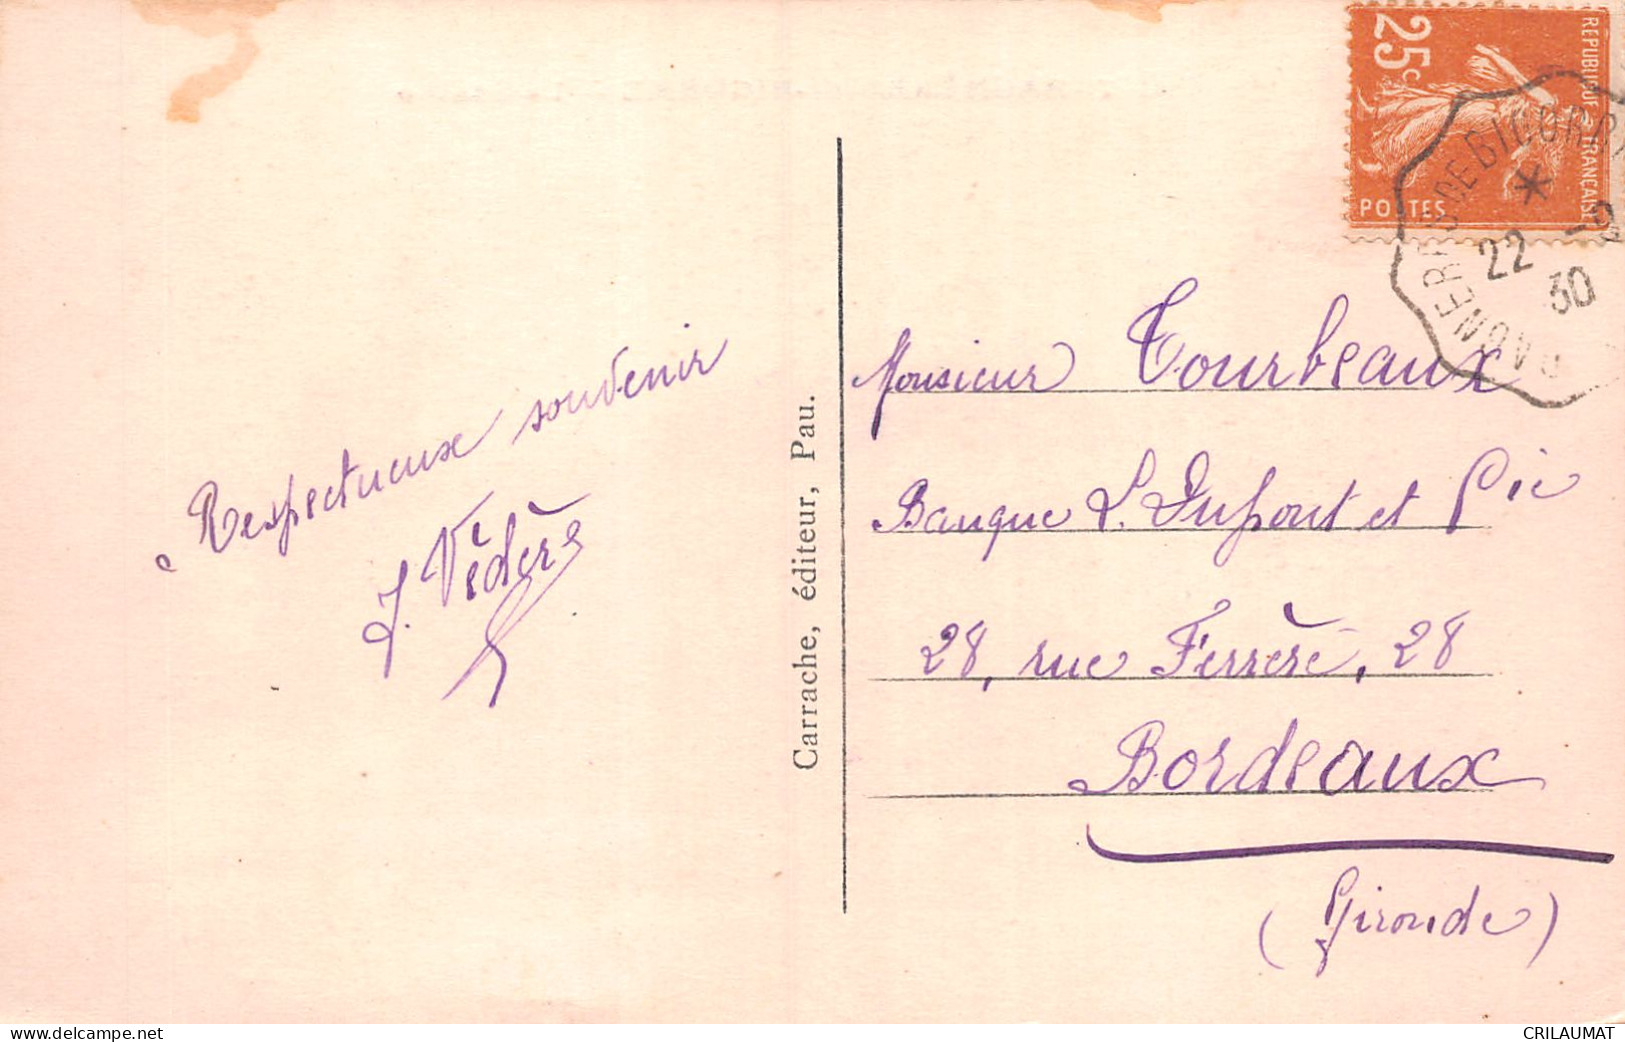 25c
REPUBLIQUE FRANÇAISE
POSTES
BAGNERES DE BIGORRE
22 -9
30
Respectueux souvenir
J. Védère
Carrache, éditeur, Pau.
Monsieur Tourbeaux
Banque L. Dupont et Cie
28, rue Ferrère, 28
Bordeaux
(Gironde)
www.delcampe.net
CRILAUMAT